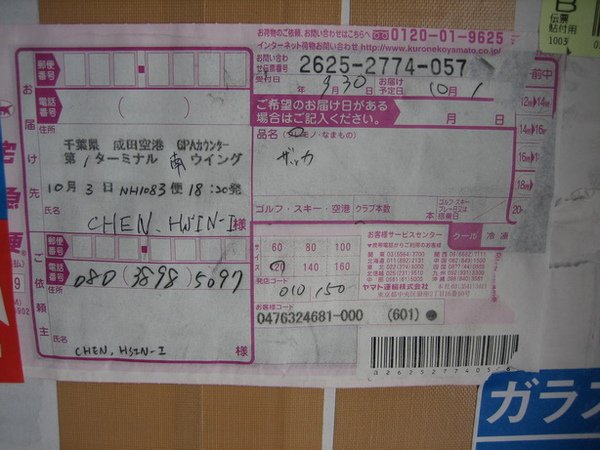 お荷物のご依頼、お届けについてのお問い合わせはこちらへ 0120-01-9625
インターネット荷物お問い合わせ http://www.kuronekoyamato.co.jp/
お問い合わせ伝票番号 2625-2774-057
受付日 9月30日 お届け予定日 10月1
ご希望のお届け日がある場合はご記入ください。 月 日
品名
ザッカ
ゴルフ・スキー・空港 クラブ本数 本
郵便番号
電話番号 ( )
住所
お届け先
千葉県 成田空港 GPAカウンター
第1ターミナル 南ウイング
10月3日 NH1083便 18:20発
氏名
CHEN, HSIN-I 様
郵便番号
電話番号 080(3898)5697
住所
ご依頼主
氏名
CHEN, HSIN-I 様
サイズ
60 80 100
120 140 160
発店コード
010 150
お客様コード
0476324681-000 (601)
お客様サービスセンター
クール 冷凍
ヤマト運輸株式会社
前中
12時〜14時
14時〜16時
16時〜
18時〜
20時
B
伝票
貼付用
1003
宅急便
ガラス